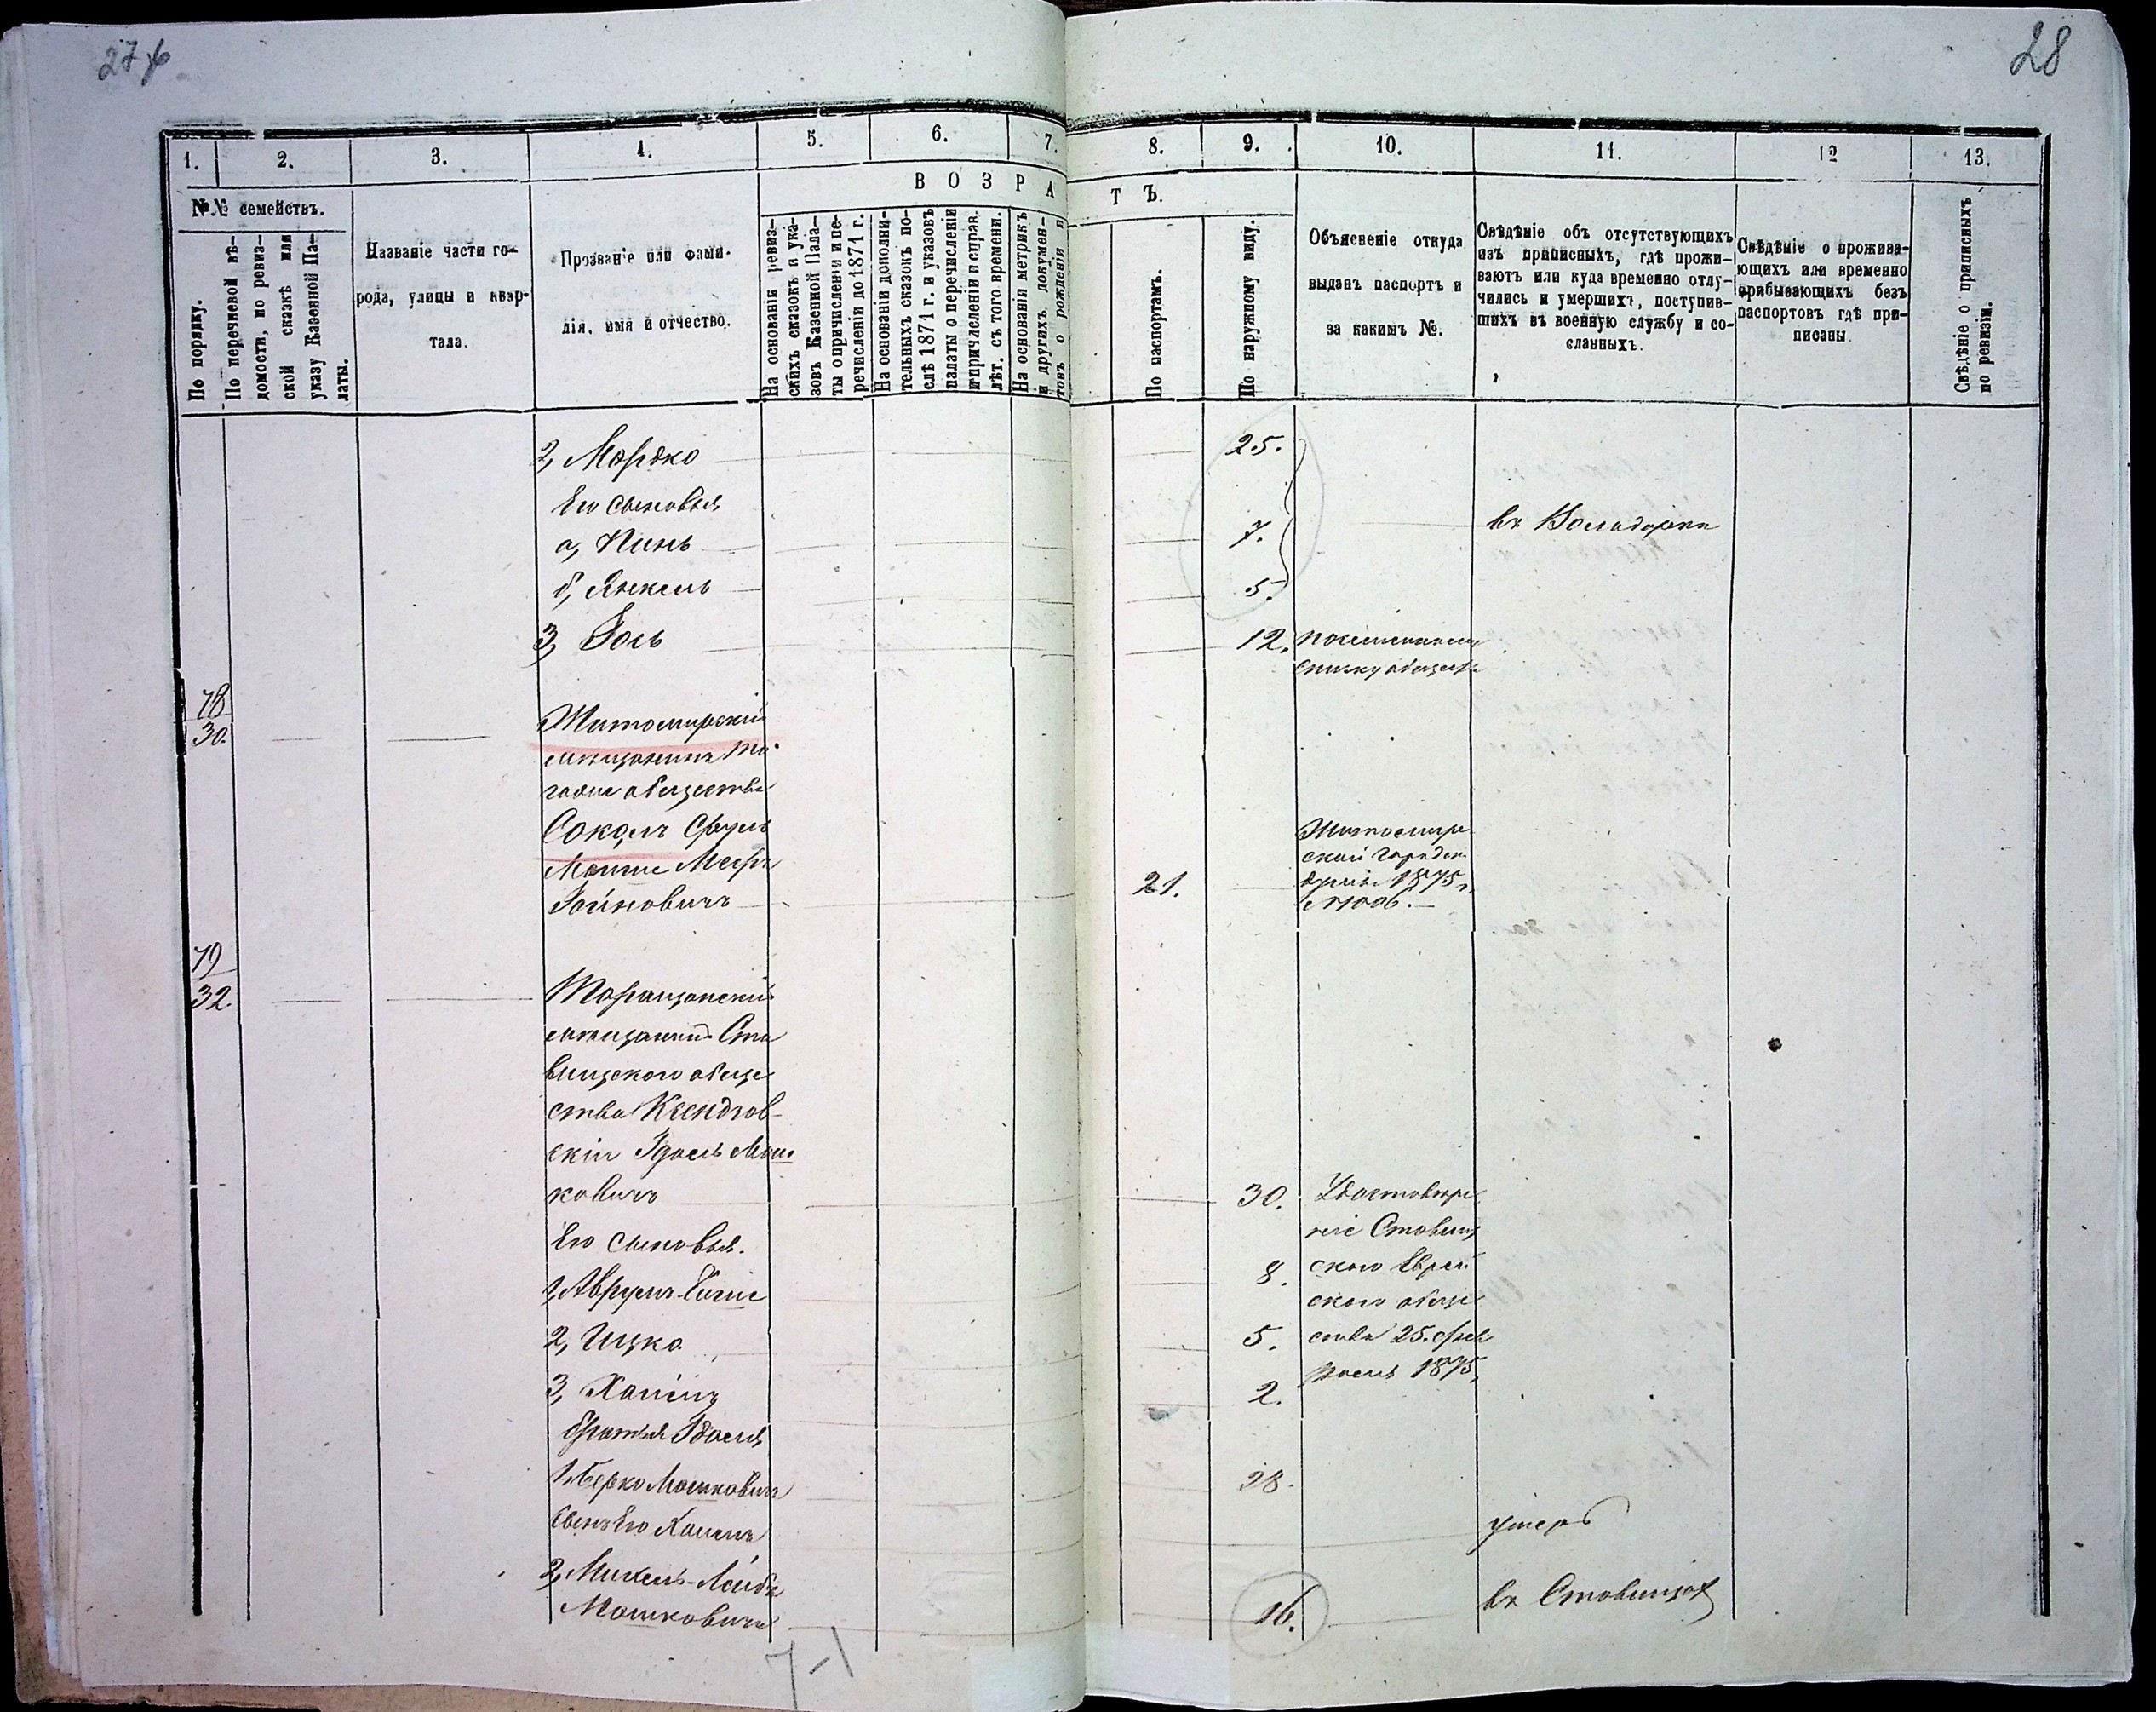 28
1.
2.
3.
4.
5.
6.
7.
8.
9.
10.
11.
12
13.
ВОЗРАСТЪ.
№№ семействъ.
По порядку.
По перечневой вѣ-
домости, по ревиз-
ской сказкѣ или
указу Казенной Па-
латы.
Названіе части го-
рода, улицы и квар-
тала.
Прозваніе или фами-
лія, имя и отчество.
На основаніи ревиз-
скихъ сказокъ и ука-
зовъ Казенной Пала-
ты о причисленіи и пе-
речисленіи до 1874 г.
На основаніи дополни-
тельныхъ сказокъ по-
слѣ 1874 г. и указовъ
палаты о перечисленіи
и причисленіи и справ.
лѣт. съ того времени.
На основаніи метрикъ
и другихъ докумен-
товъ о рожденіи и
По паспортамъ.
По наружному виду.
Объясненіе откуда
выданъ паспортъ и
за какимъ №.
Свѣдѣніе объ отсутствующихъ
изъ приписныхъ, гдѣ прожи-
ваютъ или куда временно отлу-
чились и умершихъ, поступив-
шихъ въ военную службу и со-
сланныхъ.
Свѣдѣніе о прожива-
ющихъ или временно
прибывающихъ безъ
паспортовъ гдѣ при-
писаны.
Свѣдѣніе о приписныхъ
по ревизіи.
2, Мордко
25.
Его сыновья
а, Пинь
7.
въ
б, Янкель
5.
3, Іось
12.
78
30.
Житомирскій
мѣщанинъ
общества
Соколъ Сруль
Мошко Меръ
Іойновичъ
21.
Житомир
ской город.
1875 г.
№ 1006.
79
32.
Таращанскій
мѣщанинъ Ста
вищского обще
ства Ксендзов-
скій Удель Мош
ковичъ
30.
Удостовѣре
ніе Ставищ
ского Еврей
ского обще
ства 25.
1875,
Его сыновья.
1, Аврумъ
8.
2, Ицко
5.
3, Хаимъ
2.
братья
1, Берко Мошковичъ
28.
Сынъ Его Хаимъ
умеръ
2, Михель-Лейба
Мошковичъ
16.
въ Ставищах
7-1